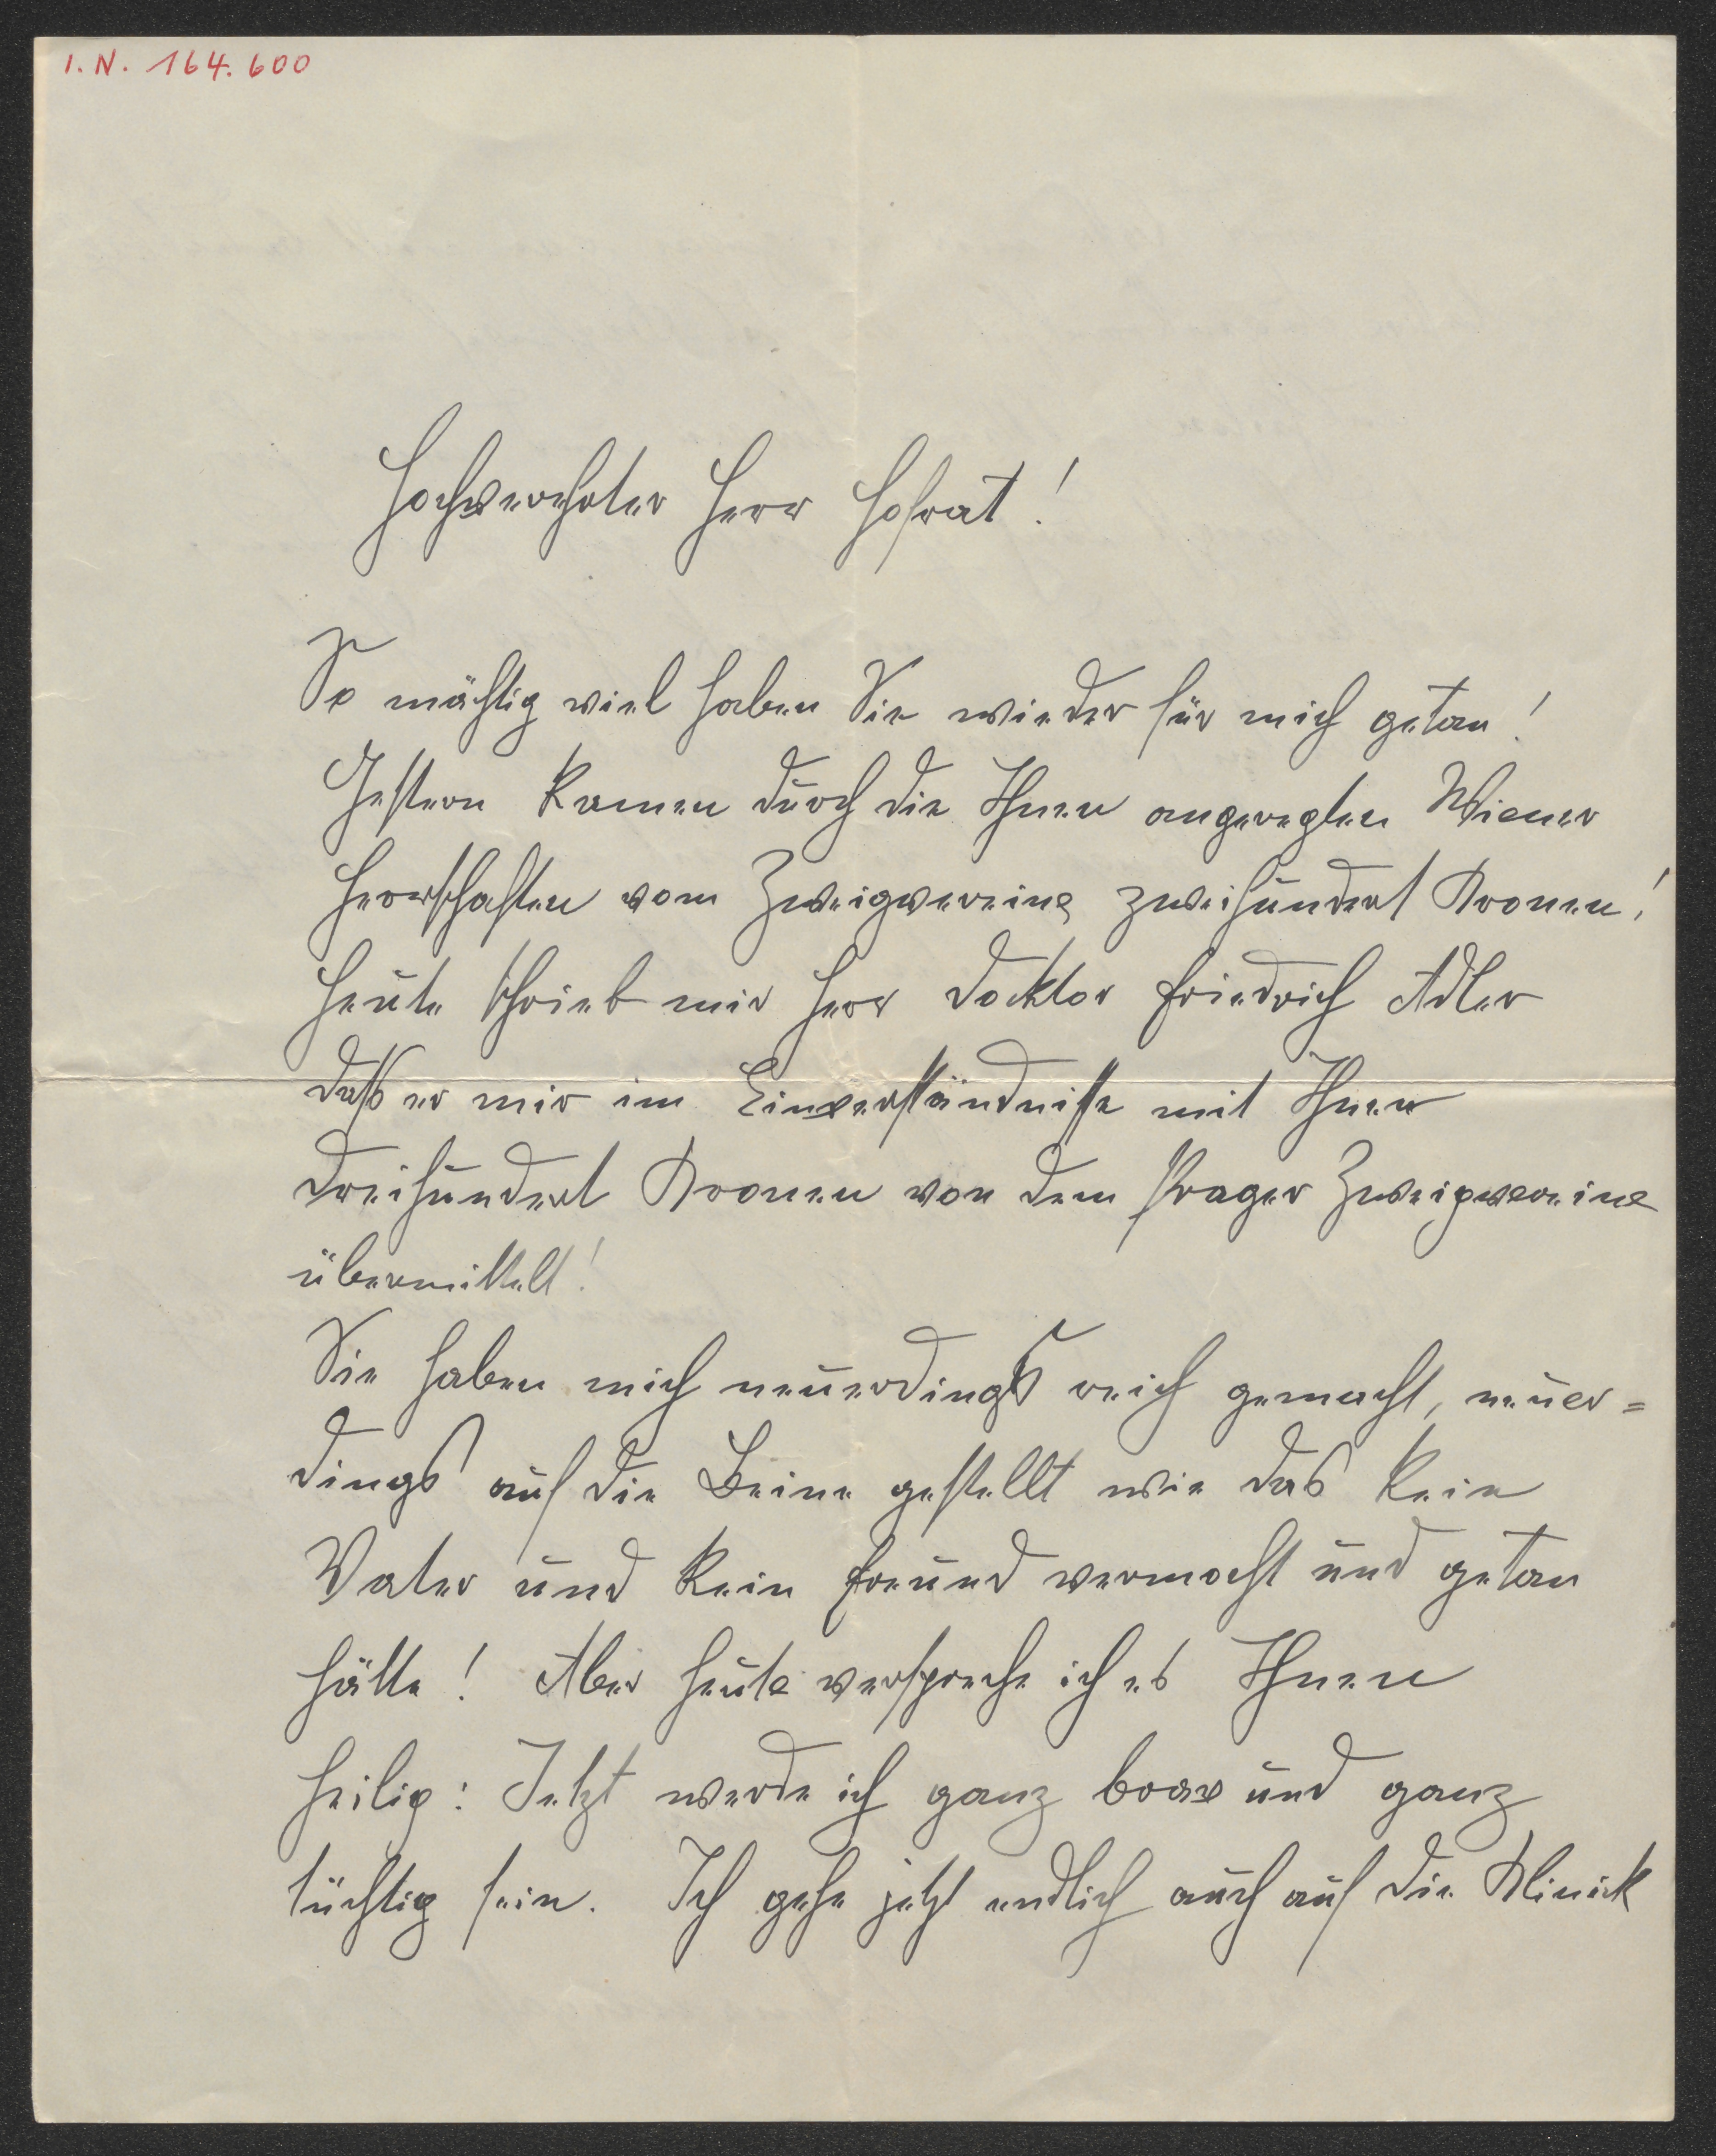 I.N. 164.600
Hochverehrter Herr Hofrat!
So mächtig viel haben Sie wieder für mich getan!
Gestern kamen durch die Ihnen angeregten Wiener
Herrschaften vom Zweigvereine zweihundert Kronen!
Heute schrieb mir Herr Docktor Friedrich Adler
daß er mir im Einverständnisse mit Ihnen
dreihundert Kronen von dem Prager Zweigvereine
übermittelt!
Sie haben mich neuerdings reich gemacht, neuer=
dings auf die Beine gestellt wie das kein
Vater und kein Freund vermocht und getan
hätte! Aber heute verspreche ich es Ihnen
heilig: Jetzt werde ich ganz brav und ganz
tüchtig sein. Ich gehe jetzt endlich auch auf die Klinick